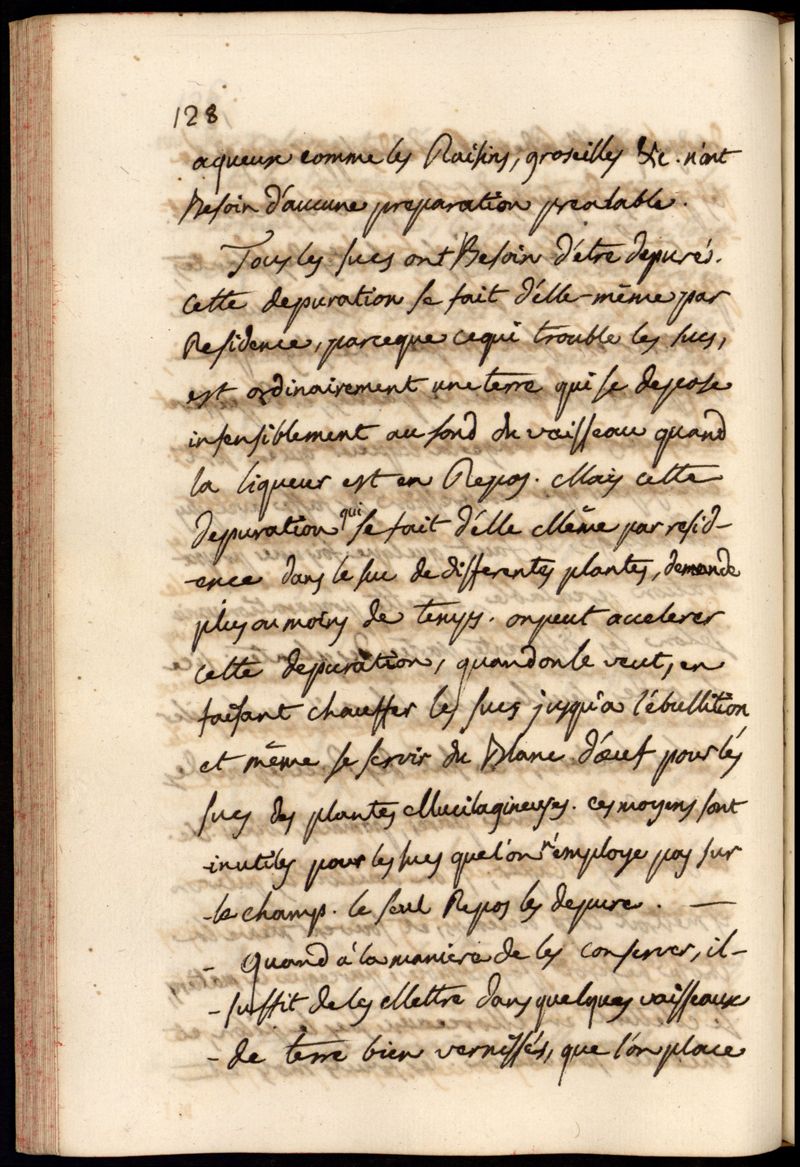 128
aqueux comme les Raisins, groseilles &c. n'ont
Besoin d'aucune preparation prealable.
Tous les sucs ont Besoin d'étre depurés.
Cette depuration se fait d'elle-même par
Residence, parceque cequi trouble les sucs,
est ordinairement une terre qui se depose
insensiblement au fond du vaisseau quand
la liqueur est en Repos. Mais cette
Depuration qui se fait d'elle Même par resid-
-ence dans le suc de differentes plantes, demande
plus ou moins de temps. on peut accelerer
cette depuration, quand on le veut, en
faisant chauffer les sucs jusqu'a l'ébullition
et même se servir du Blanc d'œuf pour les
sucs des plantes Mucilagineuses. ces moyens sont
-inutiles pour les sucs que l'on n'employe pas sur
-le champ. le seul Repos les depure. —
- Quand á la maniere de les conserver, il-
-suffit de les Mettre dans quelques vaisseaux
-de terre bien vernissés, que l'on place